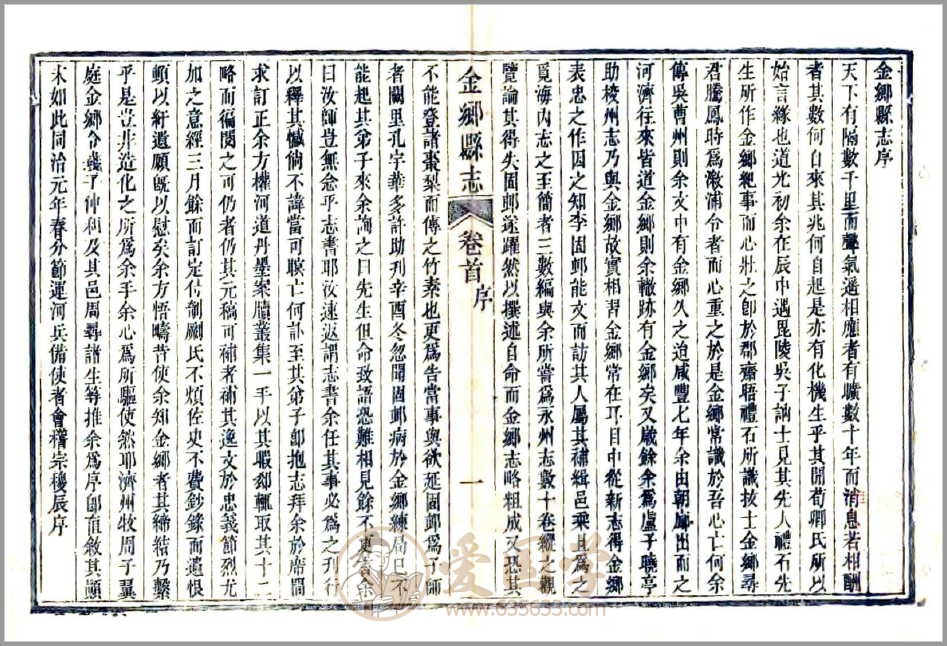 金鄉縣志序
天下有隔數千里而聲氣遙相應者有曠數十年而消息若相酬
者其數何自來其兆何自起是亦有化機生乎其間荀卿氏所以
始言緣也道光初余在辰中遇毘陵吳子訥士見其先人禮石先
生所作金鄉紀事而心壯之卽於郡齋晤禮石所識拔士金鄉尋
君騰鳳時爲漵浦令者而心重之於是金鄉常識於吾心亡何余
傳吳曹州則余文中有金鄉久之迨咸豐七年余由朝廊出而之
河濟往來皆道金鄉則余轍跡有金鄉矣又歲餘余爲盧子曉亭
助棱州志乃與金鄉故實相習金鄉常在耳目中從新志得金鄉
表忠之作因之知李固邨能文而訪其人屬其補緝邑乘且爲之
覓海內志之至簡者三數編與余所嘗爲永州志數十卷縱之觀
覽論其得失固邨遂躍然以撰述自命而金鄉志略粗成又恐其
金鄉縣志 卷首 序 一
不能登諸棗梨而傳之竹素也更爲告當事輿欲延固邨爲子師
者闕里孔宇華多許助刊辛酉冬忽聞固邨病於金鄉練局已不
能起其弟子來余詢之曰先生但命致語恐難相見餘不
曰汝師豈無念乎志書耶汝速返謂志書余任其事必爲之刊行
以釋其憾倘不諱當可瞑亡何訃至其弟子卽抱志拜余於席間
求訂正余方權河道丹墨案牘叢集一手以其暇郄輒取其十二
略而徧閱之可仍者仍其元稿可補者補其逸文於忠義節烈尤
加之意經三月餘而訂定付剞劂氏不煩佐史不費鈔錄而遺恨
頓以紓遺願旣以慰矣余方悟疇昔使余知金鄉者其締結乃繫
乎是豈非造化之所爲余手余心爲所驅使然耶濟州牧周子翼
庭金鄉令 子仲利及其邑周尋諸生等推余爲序卽直敘其顚
末如此同治元年春分節運河兵備使者會稽宗稷辰序
愛醫學
www.635633.com